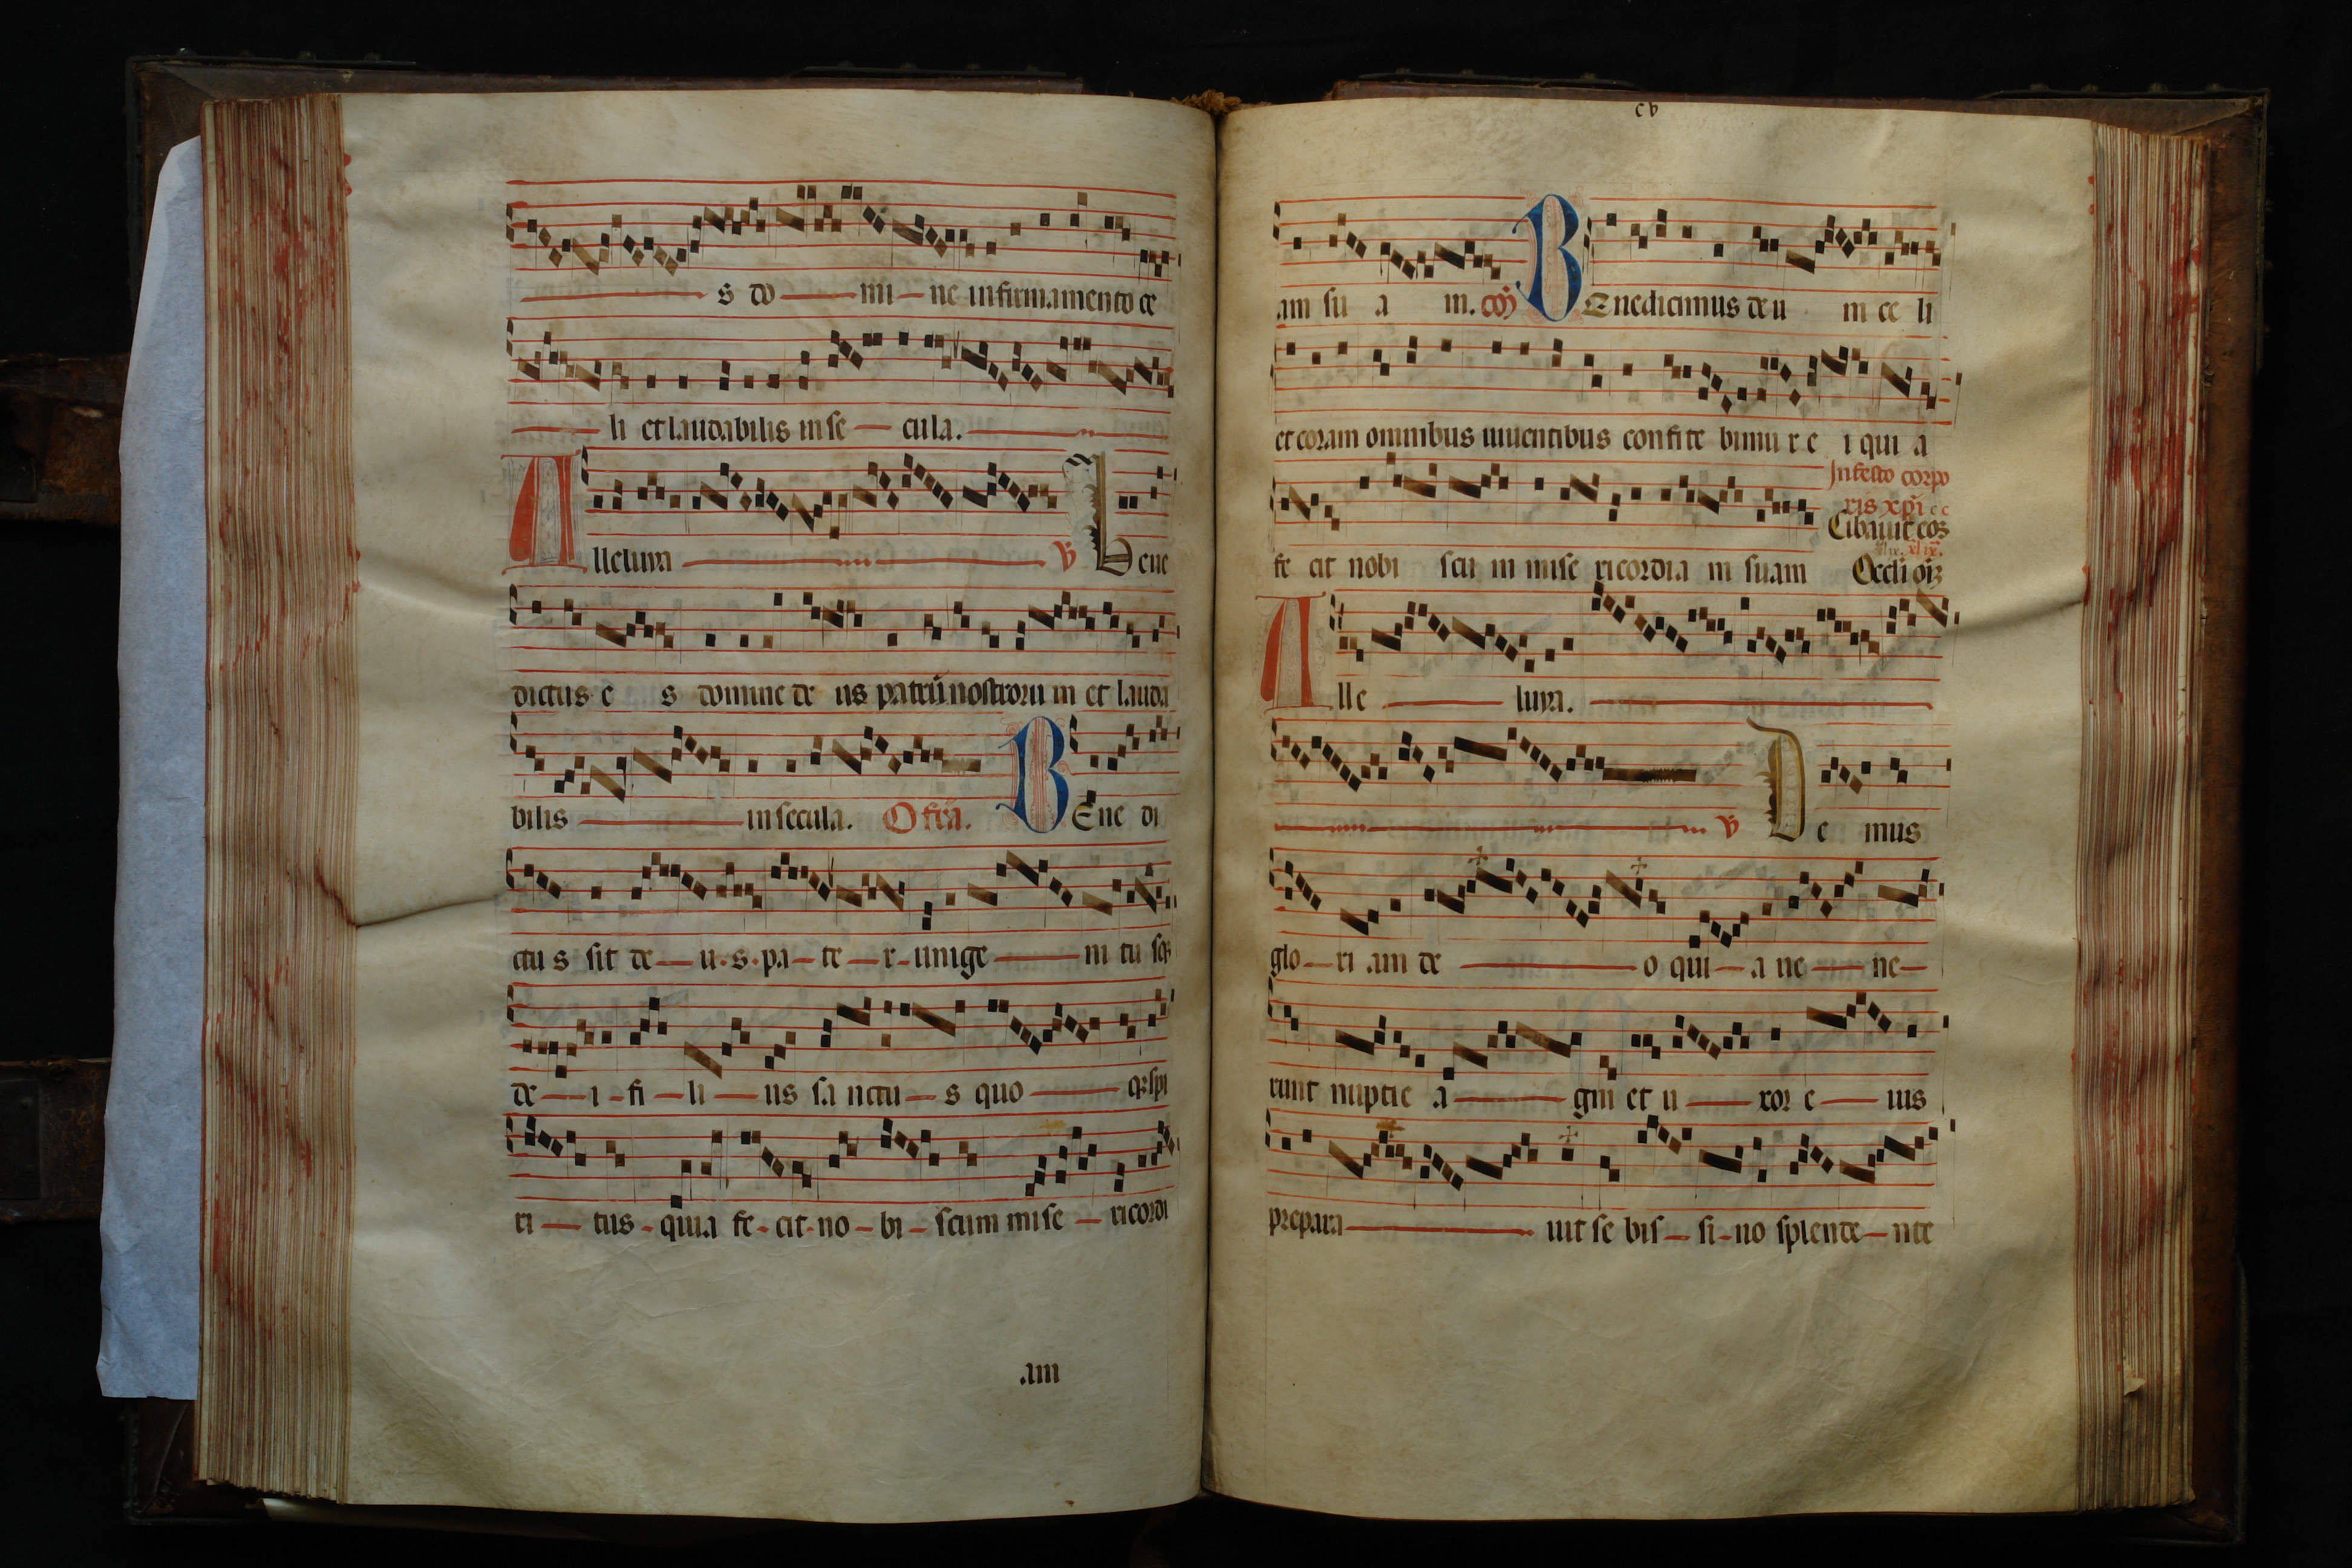 s do mi ne in firmamento ce
li et laudabilis in se cula.
Alleluya ℣ Bene
dictus e s domine de us patrū nostroru m et lauda
bilis in secula. Offrā. BEne di
ctu s sit de u s pa te r unige ni tu sqꝫ
de i fi li us sa nctu s quo qꝫ spi
ri tus quia fe cit no bi scum mise ricordi
.am
cv
am su a m. coō BEnedicimus deu m ce li
et coram omnibus uiuentibus confite bimu r e i qui a
In festo corpo
ris xpi
Cibauit eos
fe cit nobi scu m mise ricordia m suam Oculi oīꝫ
Alle luya.
℣ De mus
glo ri am de o qui a ne ne
runt nuptie a gni et u xor e ius
prepara uit se bis si no splende nte